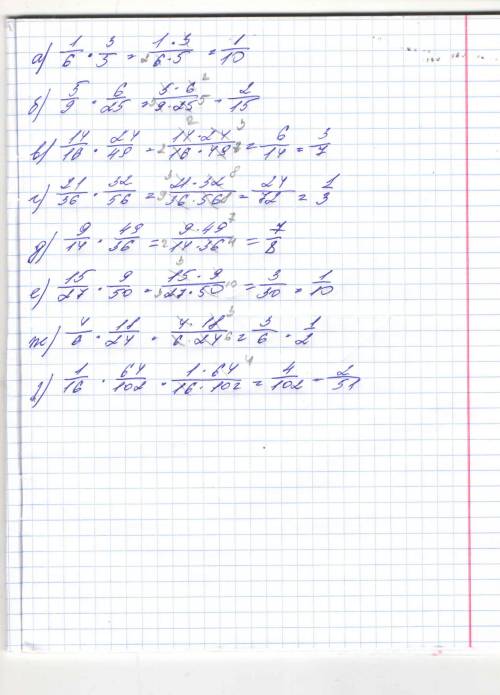 а) 1/6 · 3/5 = 1·3/6·5 2 = 1/10
б) 5/9 · 6/25 = 5·6 2/3 9·25 5 = 2/15
в) 14/16 · 24/49 = 2 14·24 3/2 16·49 7 = 6/14 = 3/7
г) 21/36 · 32/56 = 3 21·32 8/9 36·56 8 = 24/72 = 1/3
д) 9/14 · 49/36 = 9·49 7/2 14·36 4 = 7/8
е) 15/27 · 9/50 = 3 15·9/3 27·50 10 = 3/30 = 1/10
ж) 4/6 · 18/24 = 4·18 3/6·24 6 = 3/6 = 1/2
з) 1/16 · 64/102 = 1·64 4/16·102 = 4/102 = 2/51